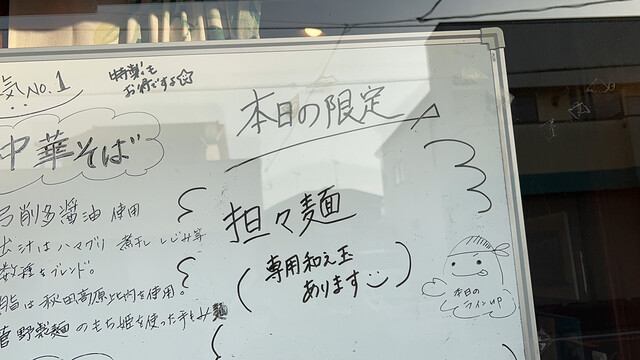 気No.1
特製も
お得ですよ☆
中華そば
弓削多醤油 使用
出汁はハマグリ 煮干し しじみ等
数種をブレンド。
脂は秋田高原比内を使用。
菅野製麺のもち姫を使った手もみ麺
本日の限定
担々麺
(専用和え玉
あります)
本日の
ラインup